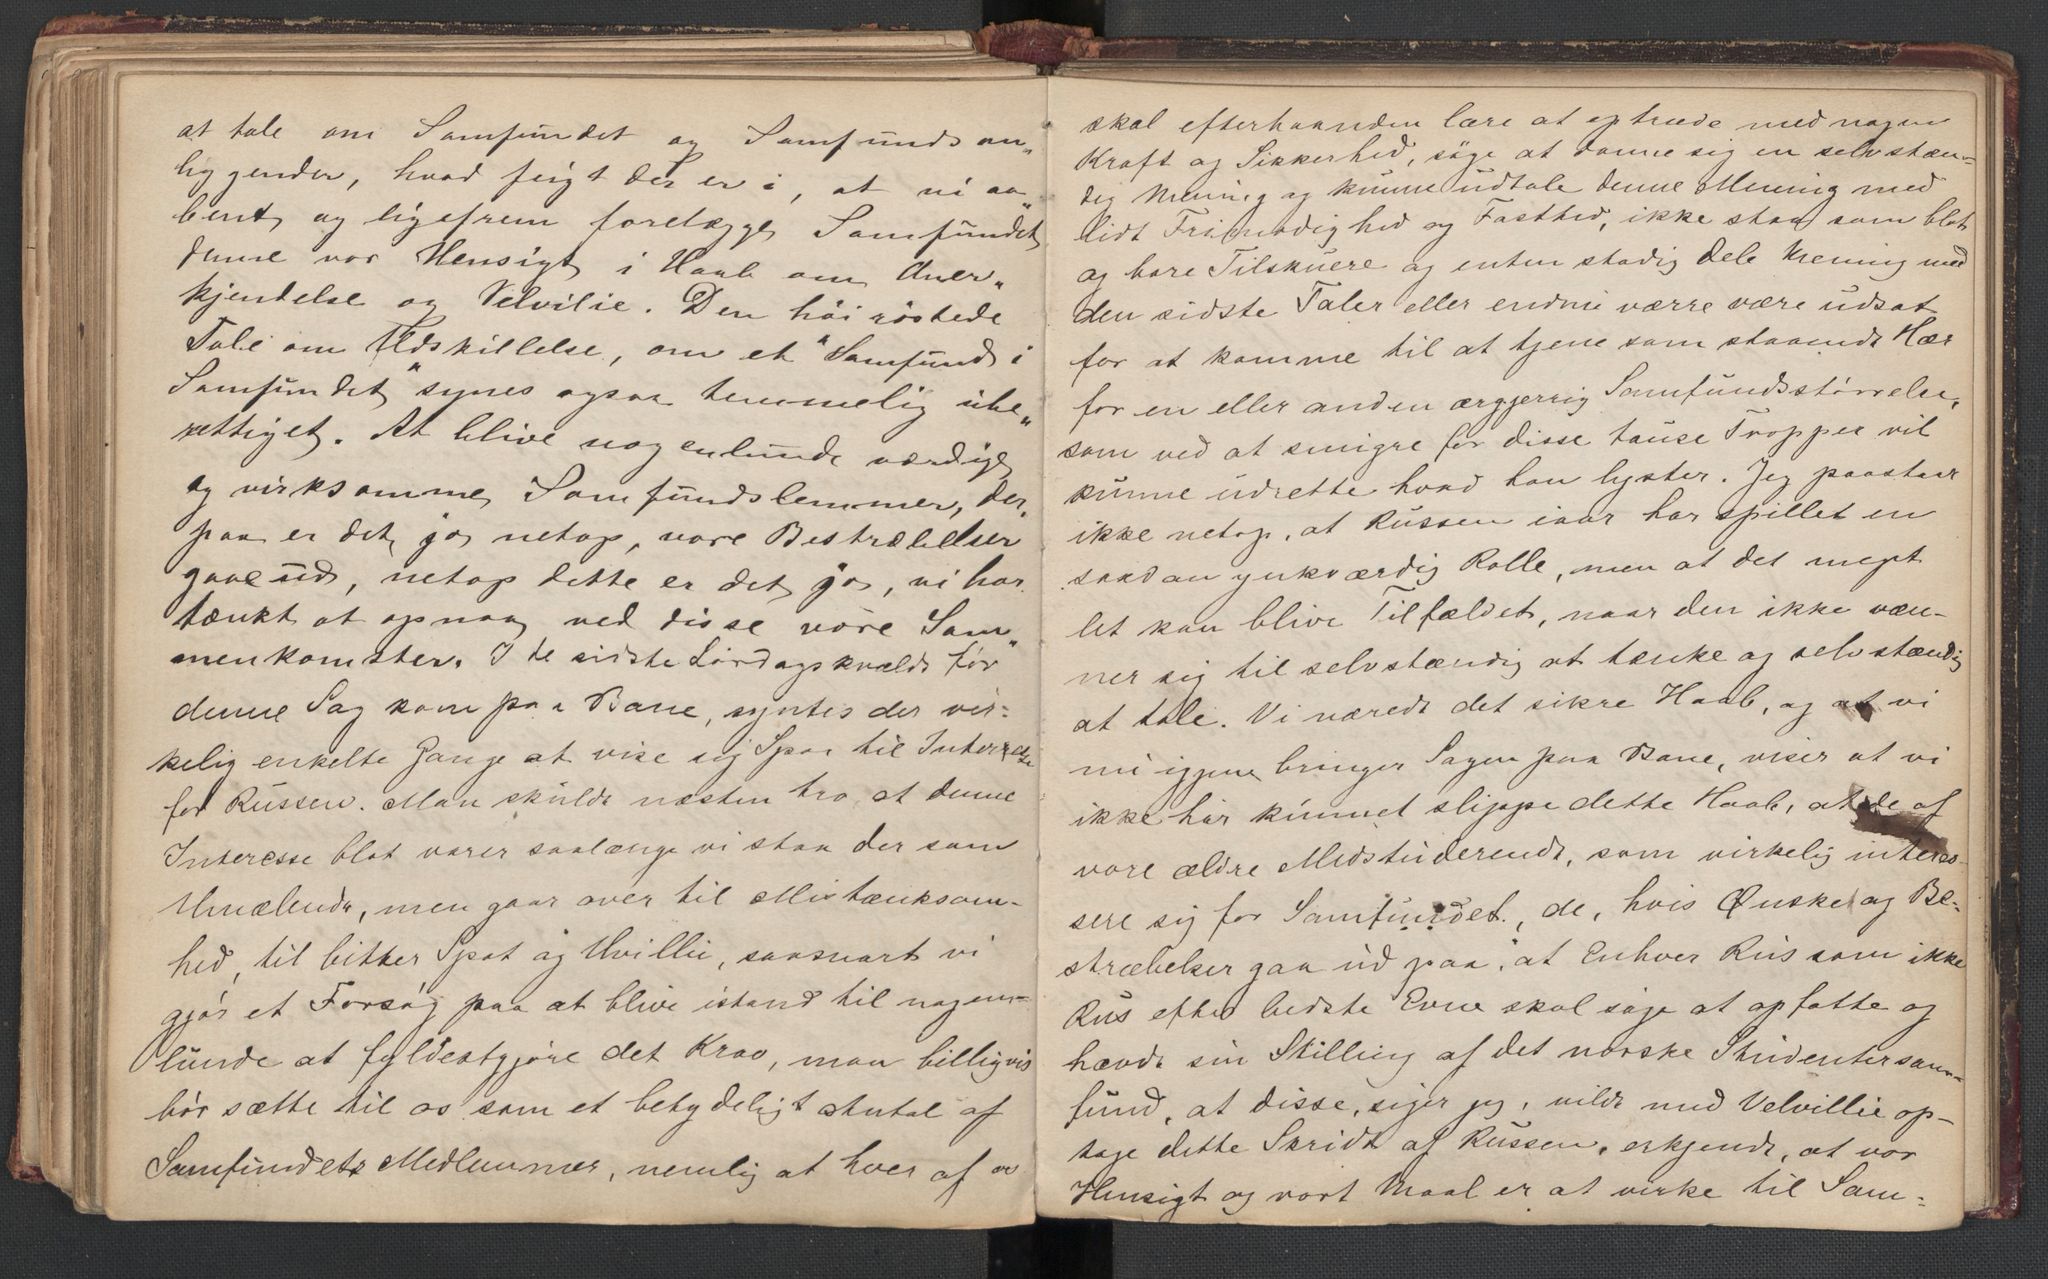 at tale om Samfundet og Samfundsan„
liggender, hvad feigt der er i, at vi aa„
bent og ligefrem forelægge Samfundet
denne vor Hensigt i Haab om Aner„
kjendelse og Velvilie. Den høirøstede
Tale om Udskillelse, om et "Samfund i
Samfundet" synes ogsaa temmelig ube„
rettiget. At blive nogenlunde værdige
og virksomme Samfundslemmer, der„
paa er det jo netop, vore Bestræbelser
gaae ud, netop dette er det jo, vi har
tænkt at opnaa ved disse vore Sam„
menkomster. I de sidste Lørdagskvelde før
denne Sag kom paa Bane, syntes der vir-
kelig enkelte Gange at vise sig Spor til Interesse
for Russen. Man skulde næsten tro at denne
Interesse blot varer saalænge vi staa der som
Umælende, men gaar over til Mistænksom-
hed, til bitter Spot og Uvillie, saasnart vi
gjør et Forsøg paa at blive istand til nogen-
lunde at fyldestgjøre det Krav, man billigvis
bør sætte til os som et betydeligt Antal af
Samfundets Medlemmer, nemlig at hver af os
skal efterhaanden lære at optræde med nogen
Kraft og Sikkerhed, søge at danne sig en selvstæn-
dig Mening og kunne udtale denne Mening med
lidt Frimodighed og Fasthed, ikke staa som blot
og bare Tilskuere og enten stadig dele Mening med
den sidste Taler eller endnu værre være udsat
for at komme til at tjene som staaende Hær
for en eller anden ærgjerrig Samfundsstørrelse,
som ved at smigre for disse tause Tropper vil
kunne udrette hvad han lyster. Jeg paastaar
ikke netop, at Russen iaar har spillet en
saadan ynkværdig Rolle, men at det meget
let kan blive Tilfældet, naar den ikke væn-
ner sig til selvstændig at tænke og selvstændig
at tale. Vi nærede det sikre Haab, og at vi
nu igjen bringer Sagen paa Bane, viser at vi
ikke har kunnet slippe dette Haab, at de af
vore ældre Medstuderende, som virkelig interes-
sere sig for Samfundet, de, hvis Ønske og Be-
stræbelser gaa ud paa, at Enhver Rus som ikke
Rus efter bedste Evne skal søge at opfatte og
hævde sin Stilling af det norske Studentersam-
fund, at disse, siger jeg, vilde med Velvillie op-
tage dette Skridt af Russen, erkjende, at vor
Hensigt og vort Maal er at virke til Sam-